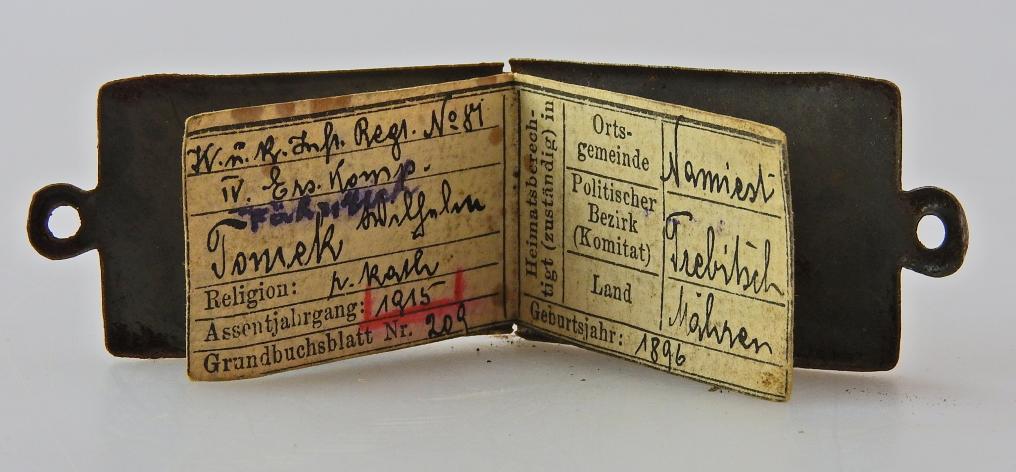 K. u. k. Inft. Regt. No 81
IV. Ers. Komp.
Fähnrich
Tomek Wilhelm
Religion: r. kath
Assentjahrgang: 1915
Grundbuchsblatt Nr. 209
Heimatsberech-
tigt (zuständig) in
Orts-
gemeinde Namiest
Politischer
Bezirk
(Komitat) Trebitsch
Land Mähren
Geburtsjahr: 1896